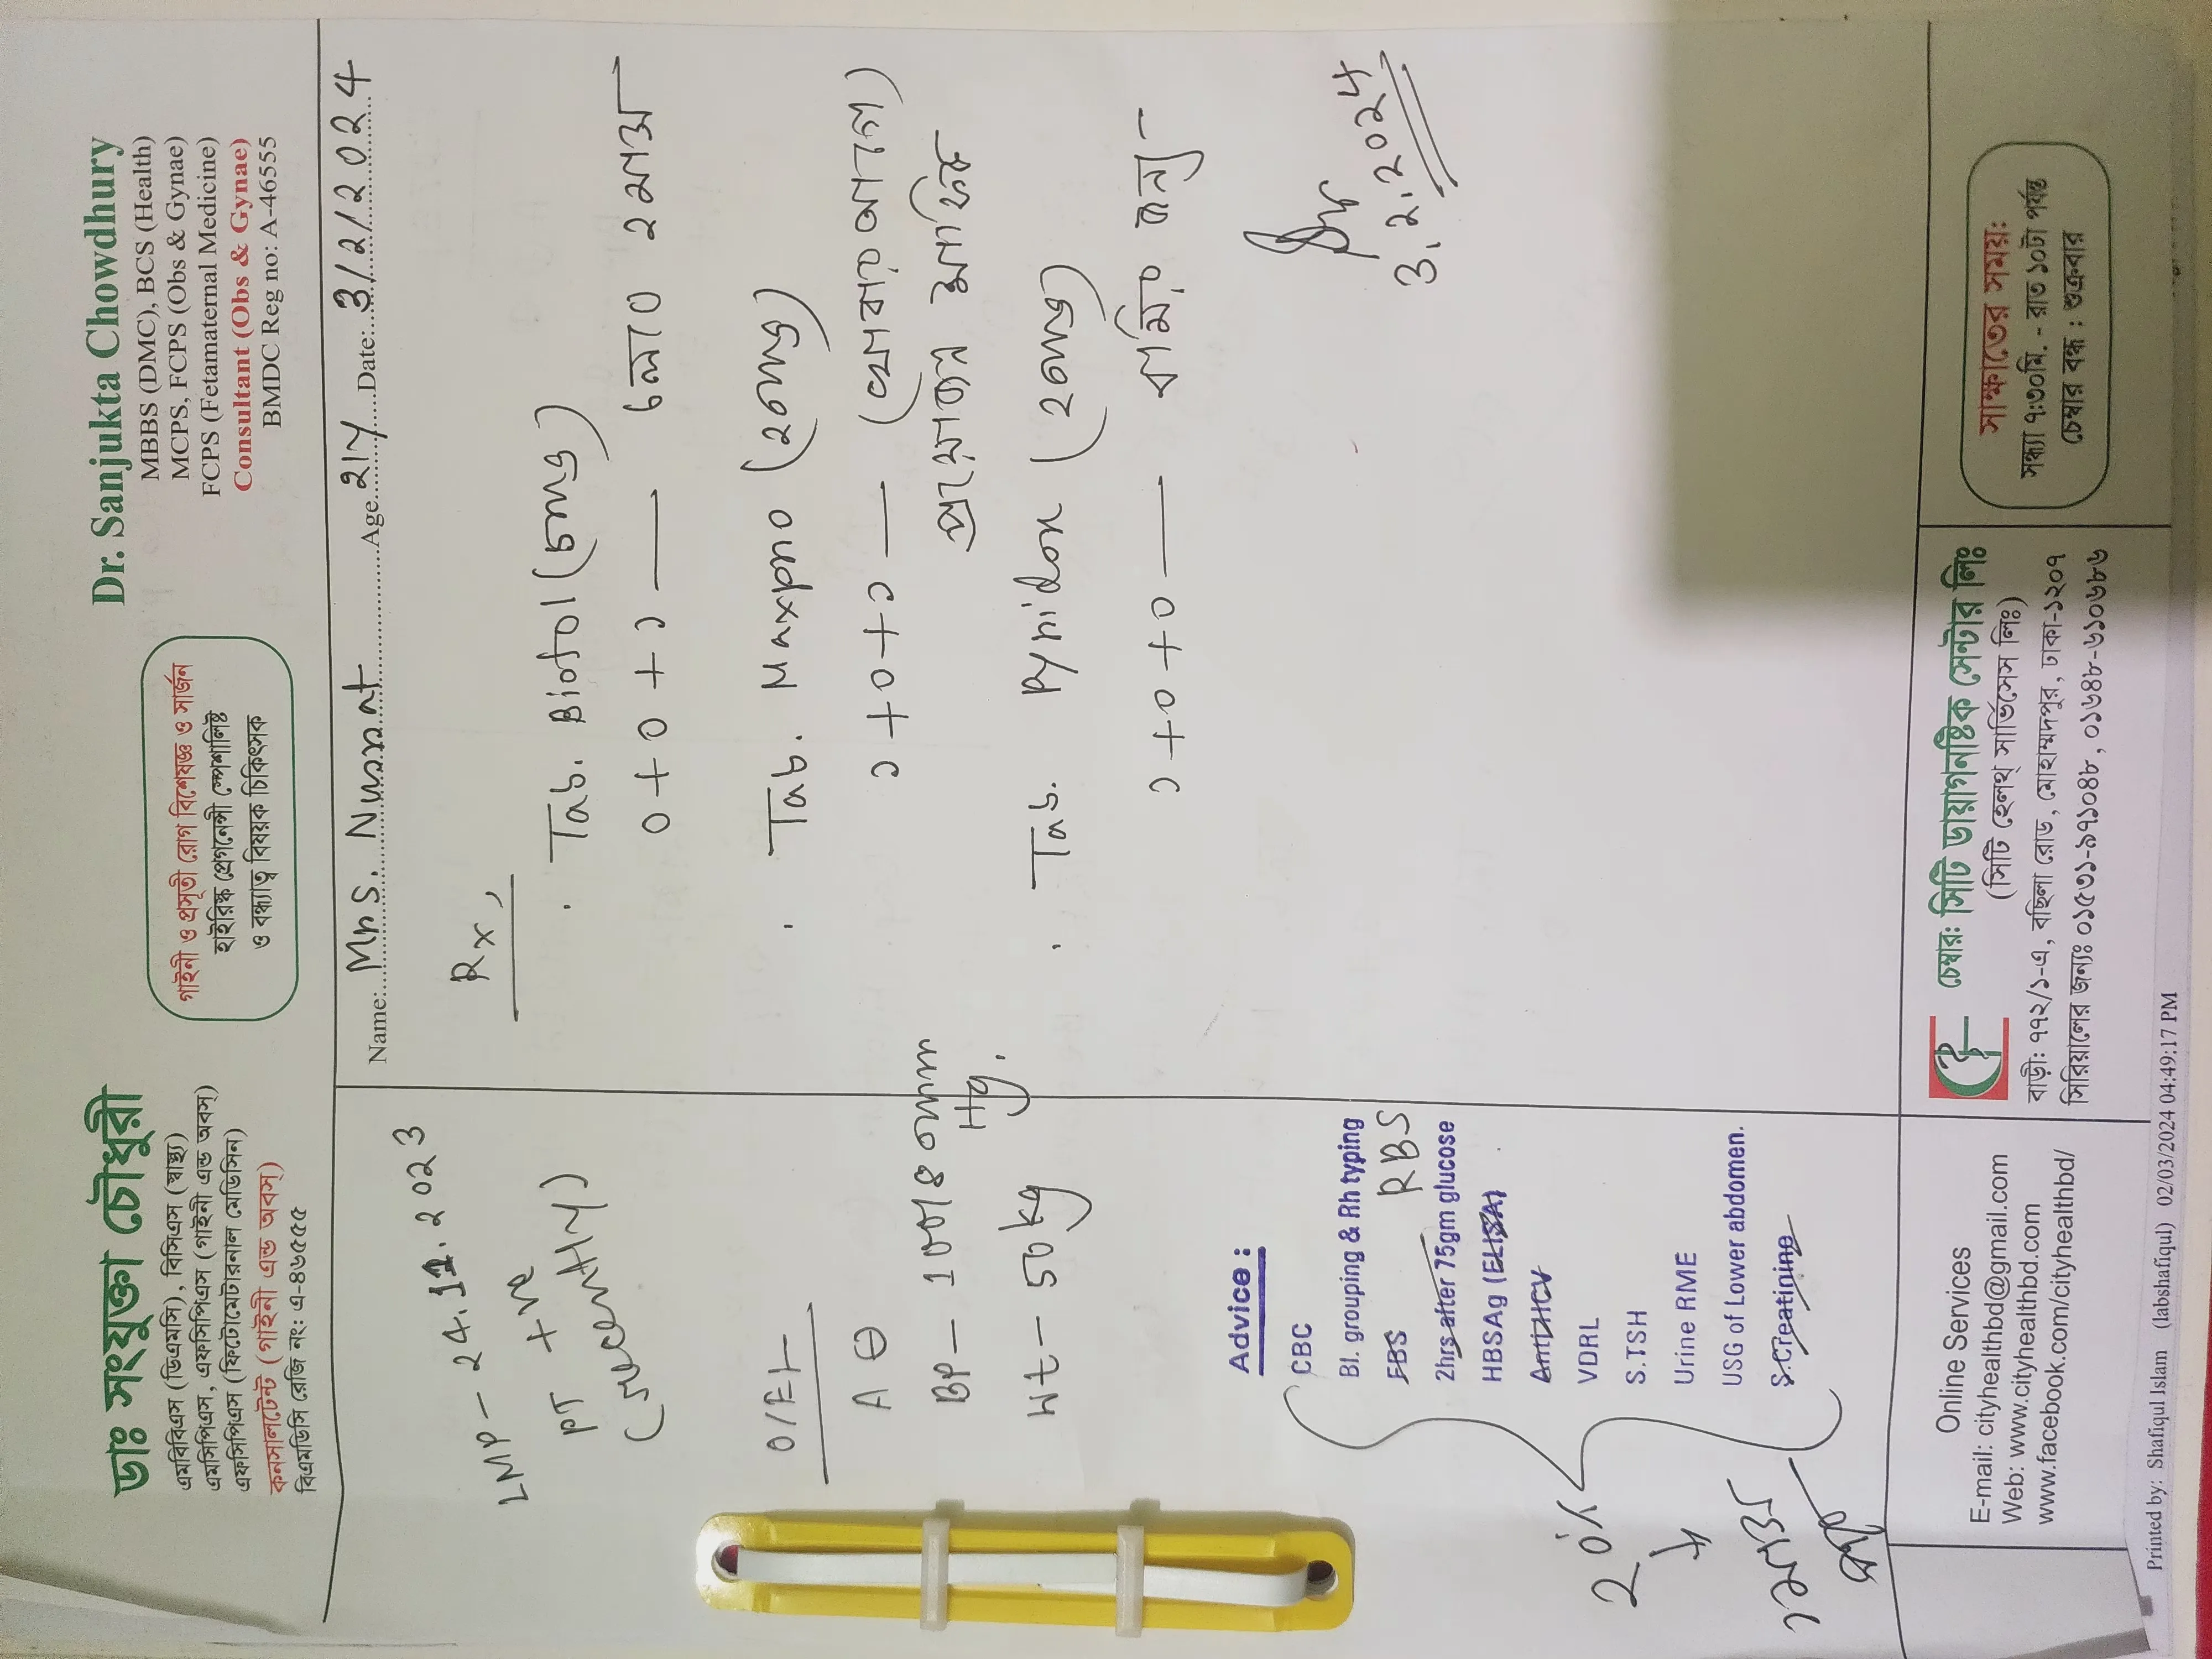 ডাঃ সংযুক্তা চৌধুরী
এমবিবিএস (ডিএমসি), বিসিএস (স্বাস্থ্য)
এমসিপিএস, এফসিপিএস (গাইনী এন্ড অবস্)
এফসিপিএস (ফিটোমেটারনাল মেডিসিন)
কনসালটেন্ট (গাইনী এন্ড অবস্)
বিএমডিসি রেজি নং: এ-৪৬৫৫৫
গাইনী ও প্রসূতী রোগ বিশেষজ্ঞ ও সার্জন
হাইরিস্ক প্রেগনেন্সী স্পেশালিষ্ট
ও বন্ধ্যাত্ব বিষয়ক চিকিৎসক
Dr. Sanjukta Chowdhury
MBBS (DMC), BCS (Health)
MCPS, FCPS (Obs & Gynae)
FCPS (Fetamaternal Medicine)
Consultant (Obs & Gynae)
BMDC Reg no: A-46555
Name: Mrs. Nusrat Age 21y Date: 3/2/2024
LMP - 24.12.2023
PT +ve
O/E
A
BP - 100/80 mm Hg.
Wt - 50 kg
Advice :
CBC
Bl. grouping & Rh typing
FBS RBS
2hrs after 75gm glucose
HBSAg (ELISA)
AntiHCV
VDRL
S.TSH
Urine RME
USG of Lower abdomen.
S.Creatinine
20%
Rx,
Tab. (5mg)
0+0+১ — চলবে ২ মাস
Tab. Maxpro (20mg)
১+০+১ — (খাবার আগে)
প্রয়োজন মাফিক
Tab. Pyridon (20mg)
১+০+০ — বমির জন্য
৩.২.২০২৪
Online Services
E-mail: cityhealthbd@gmail.com
Web: www.cityhealthbd.com
www.facebook.com/cityhealthbd/
চেম্বার: সিটি ডায়াগনষ্টিক সেন্টার লিঃ
(সিটি হেলথ্ সার্ভিসেস লিঃ)
বাড়ী: ৭৭২/১-এ, বছিলা রোড, মোহাম্মদপুর, ঢাকা-১২০৭
সিরিয়ালের জন্যঃ ০১৫৩১-৯৭১০৪৮, ০১৬৪৮-৬১০৬৮৬
সাক্ষাতের সময়:
সন্ধ্যা ৭:৩০মি. - রাত ১০টা পর্যন্ত
চেম্বার বন্ধ : শুক্রবার
Printed by: Shafiqul Islam (labshafiqul) 02/03/2024 04:49:17 PM